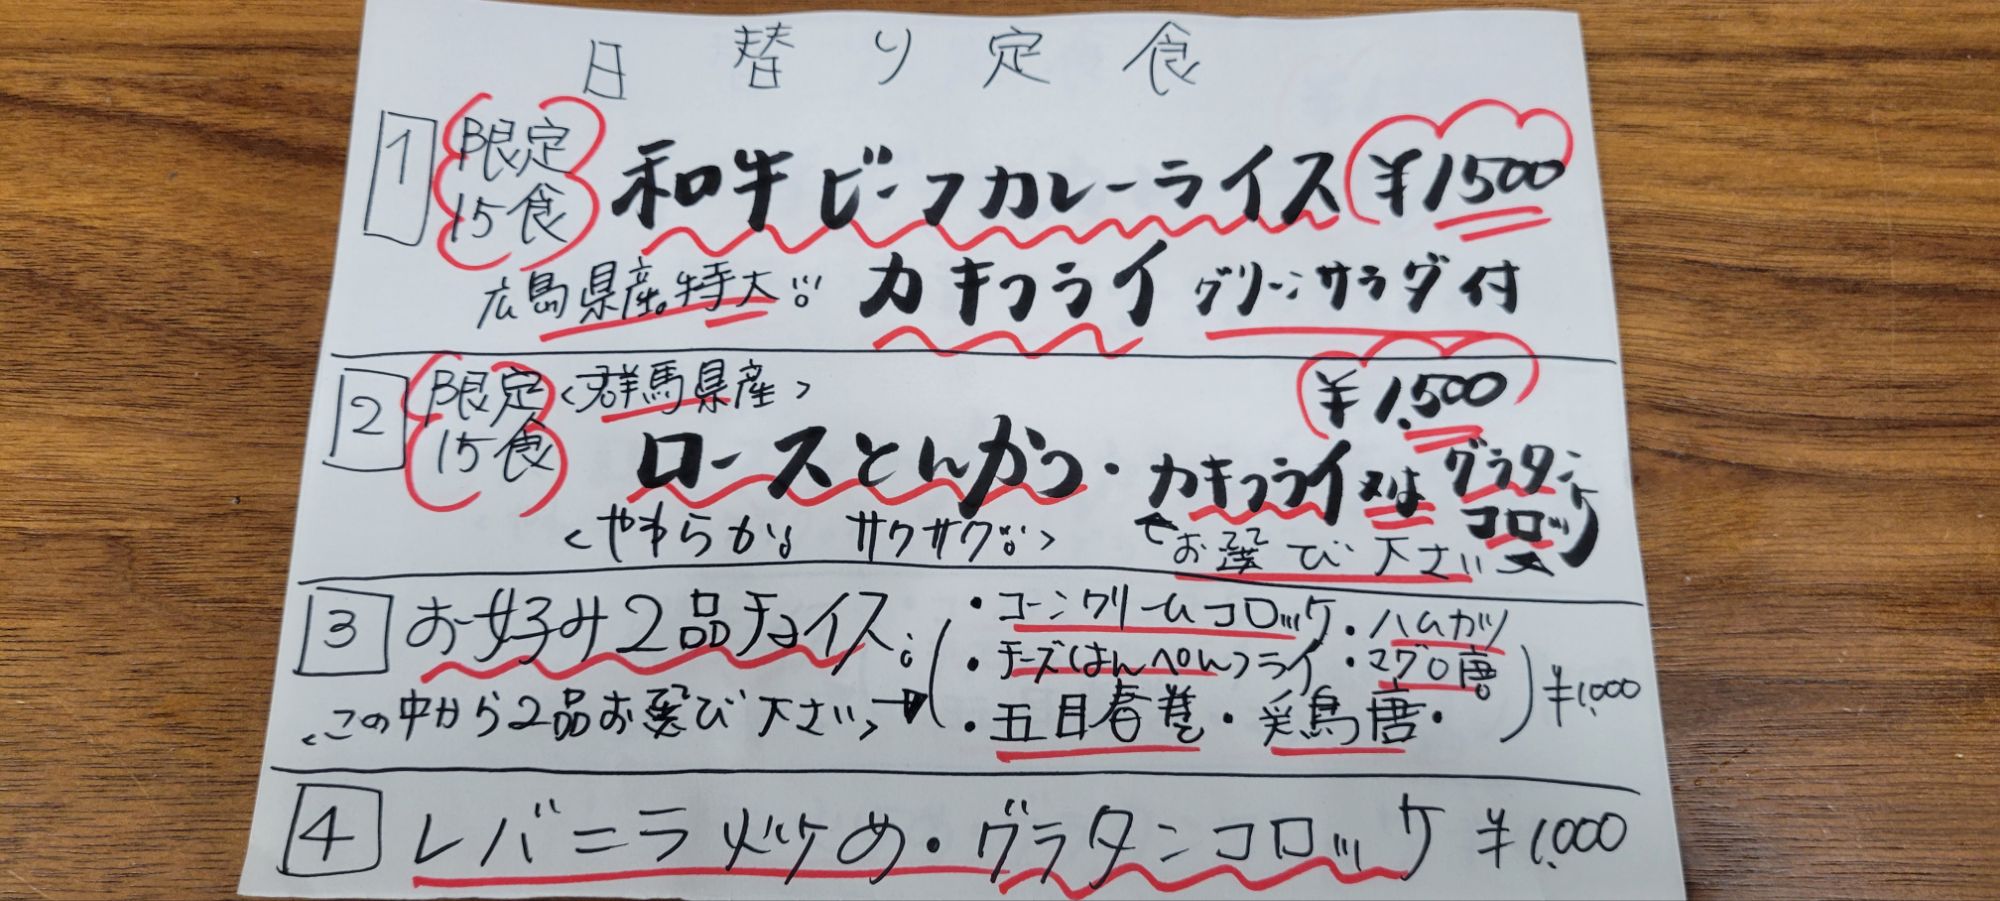 日替り定食
1 限定15食 和牛ビーフカレーライス ¥1500
広島県産。特大!! カキフライ グリーンサラダ付
2 限定15食 <群馬県産> ¥1,500
ロースとんかつ・カキフライ又はグラタンコロッケ
<やわらか サクサク> お選び下さい
3 お好み2品チョイス
・コーンクリームコロッケ・ハムカツ
・チーズはんぺんフライ・マグロ唐
・五目春巻・ 鳥唐・
<この中から2品お選び下さい> ¥1,000
4 レバニラ炒め・グラタンコロッケ ¥1,000